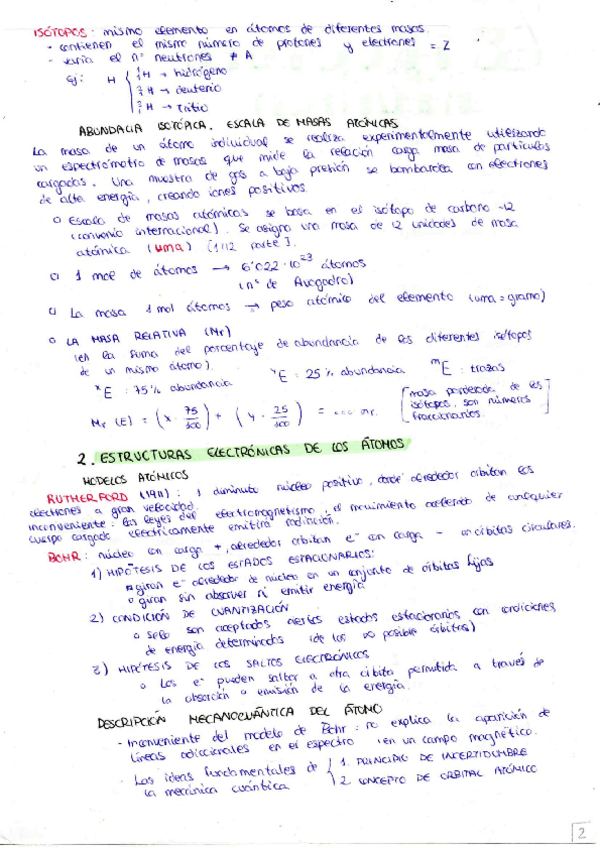 ISÓTOPOS: mismo elemento en átomos de diferentes masas.
- contienen el mismo número de protones y electrones = Z
- varía el nº neutrones ≠ A
Ej: H { ¹₁H → hidrógeno
²₁H → deuterio
³₁H → tritio
ABUNDACIA ISOTÓPICA. ESCALA DE MASAS ATÓMICAS
La masa de un átomo individual se realiza experimentalmente utilizando
un espectrómetro de masas que mide la relación carga masa de partículas
cargadas. Una muestra de gas a baja presión se bombardea con electrones
de alta energía, creando iones positivos.
o Escala de masas atómicas se basa en el isótopo de carbono-12
(convenio internacional). Se asigna una masa de 12 unidades de masa
atómica (uma) [1/12 parte].
o 1 mol de átomos → 6'022·10²³ átomos
(nº de Avogadro)
o La masa 1 mol átomos → peso atómico del elemento (uma=gramo)
o LA MASA RELATIVA (Mr)
es la suma del porcentaje de abundancia de los diferentes isótopos
de un mismo átomo).
ˣE : 75% abundancia ʸE = 25% abundancia ᵐE : trazas
Mr (E) = (x · 75/100) + (y · 25/100) = .... mr.
[masa ponderada de los
isótopos, son números
fraccionarios.
2. ESTRUCTURAS ELECTRÓNICAS DE LOS ÁTOMOS
MODELOS ATÓMICOS
RUTHERFORD (1911): 1 diminuto núcleo positivo, donde alrededor orbitan los
electrones a gran velocidad.
inconveniente: las leyes del electromagnetismo, el movimiento acelerado de cualquier
cuerpo cargado eléctricamente emitiría radiación.
BOHR: núcleo con carga +, alrededor orbitan e⁻ con carga - en órbitas circulares.
1) HIPÓTESIS DE LOS ESTADOS ESTACIONARIOS:
o giran e⁻ alrededor de núcleo en un conjunto de órbitas fijas
o giran sin absorver ni emitir energía
2) CONDICIÓN DE CUANTIZACIÓN
o solo son aceptados estados estacionarios con condiciones
de energía determinados (de los ∞ posible órbitas)
3) HIPÓTESIS DE LOS SALTOS ELECTRÓNICOS
o Los e⁻ pueden saltar a otra órbita permitida a través de
la absorción o emisión de la energía.
DESCRIPCIÓN MECANOCUÁNTICA DEL ÁTOMO
- Inconveniente del modelo de Bohr: no explica la aparición de
líneas adicionales en el espectro en un campo magnético.
- Las ideas fundamentales de { 1. PRINCIPIO DE INCERTIDUMBRE
la mecánica cuántica 2. CONCEPTO DE ORBITAL ATÓMICO
2